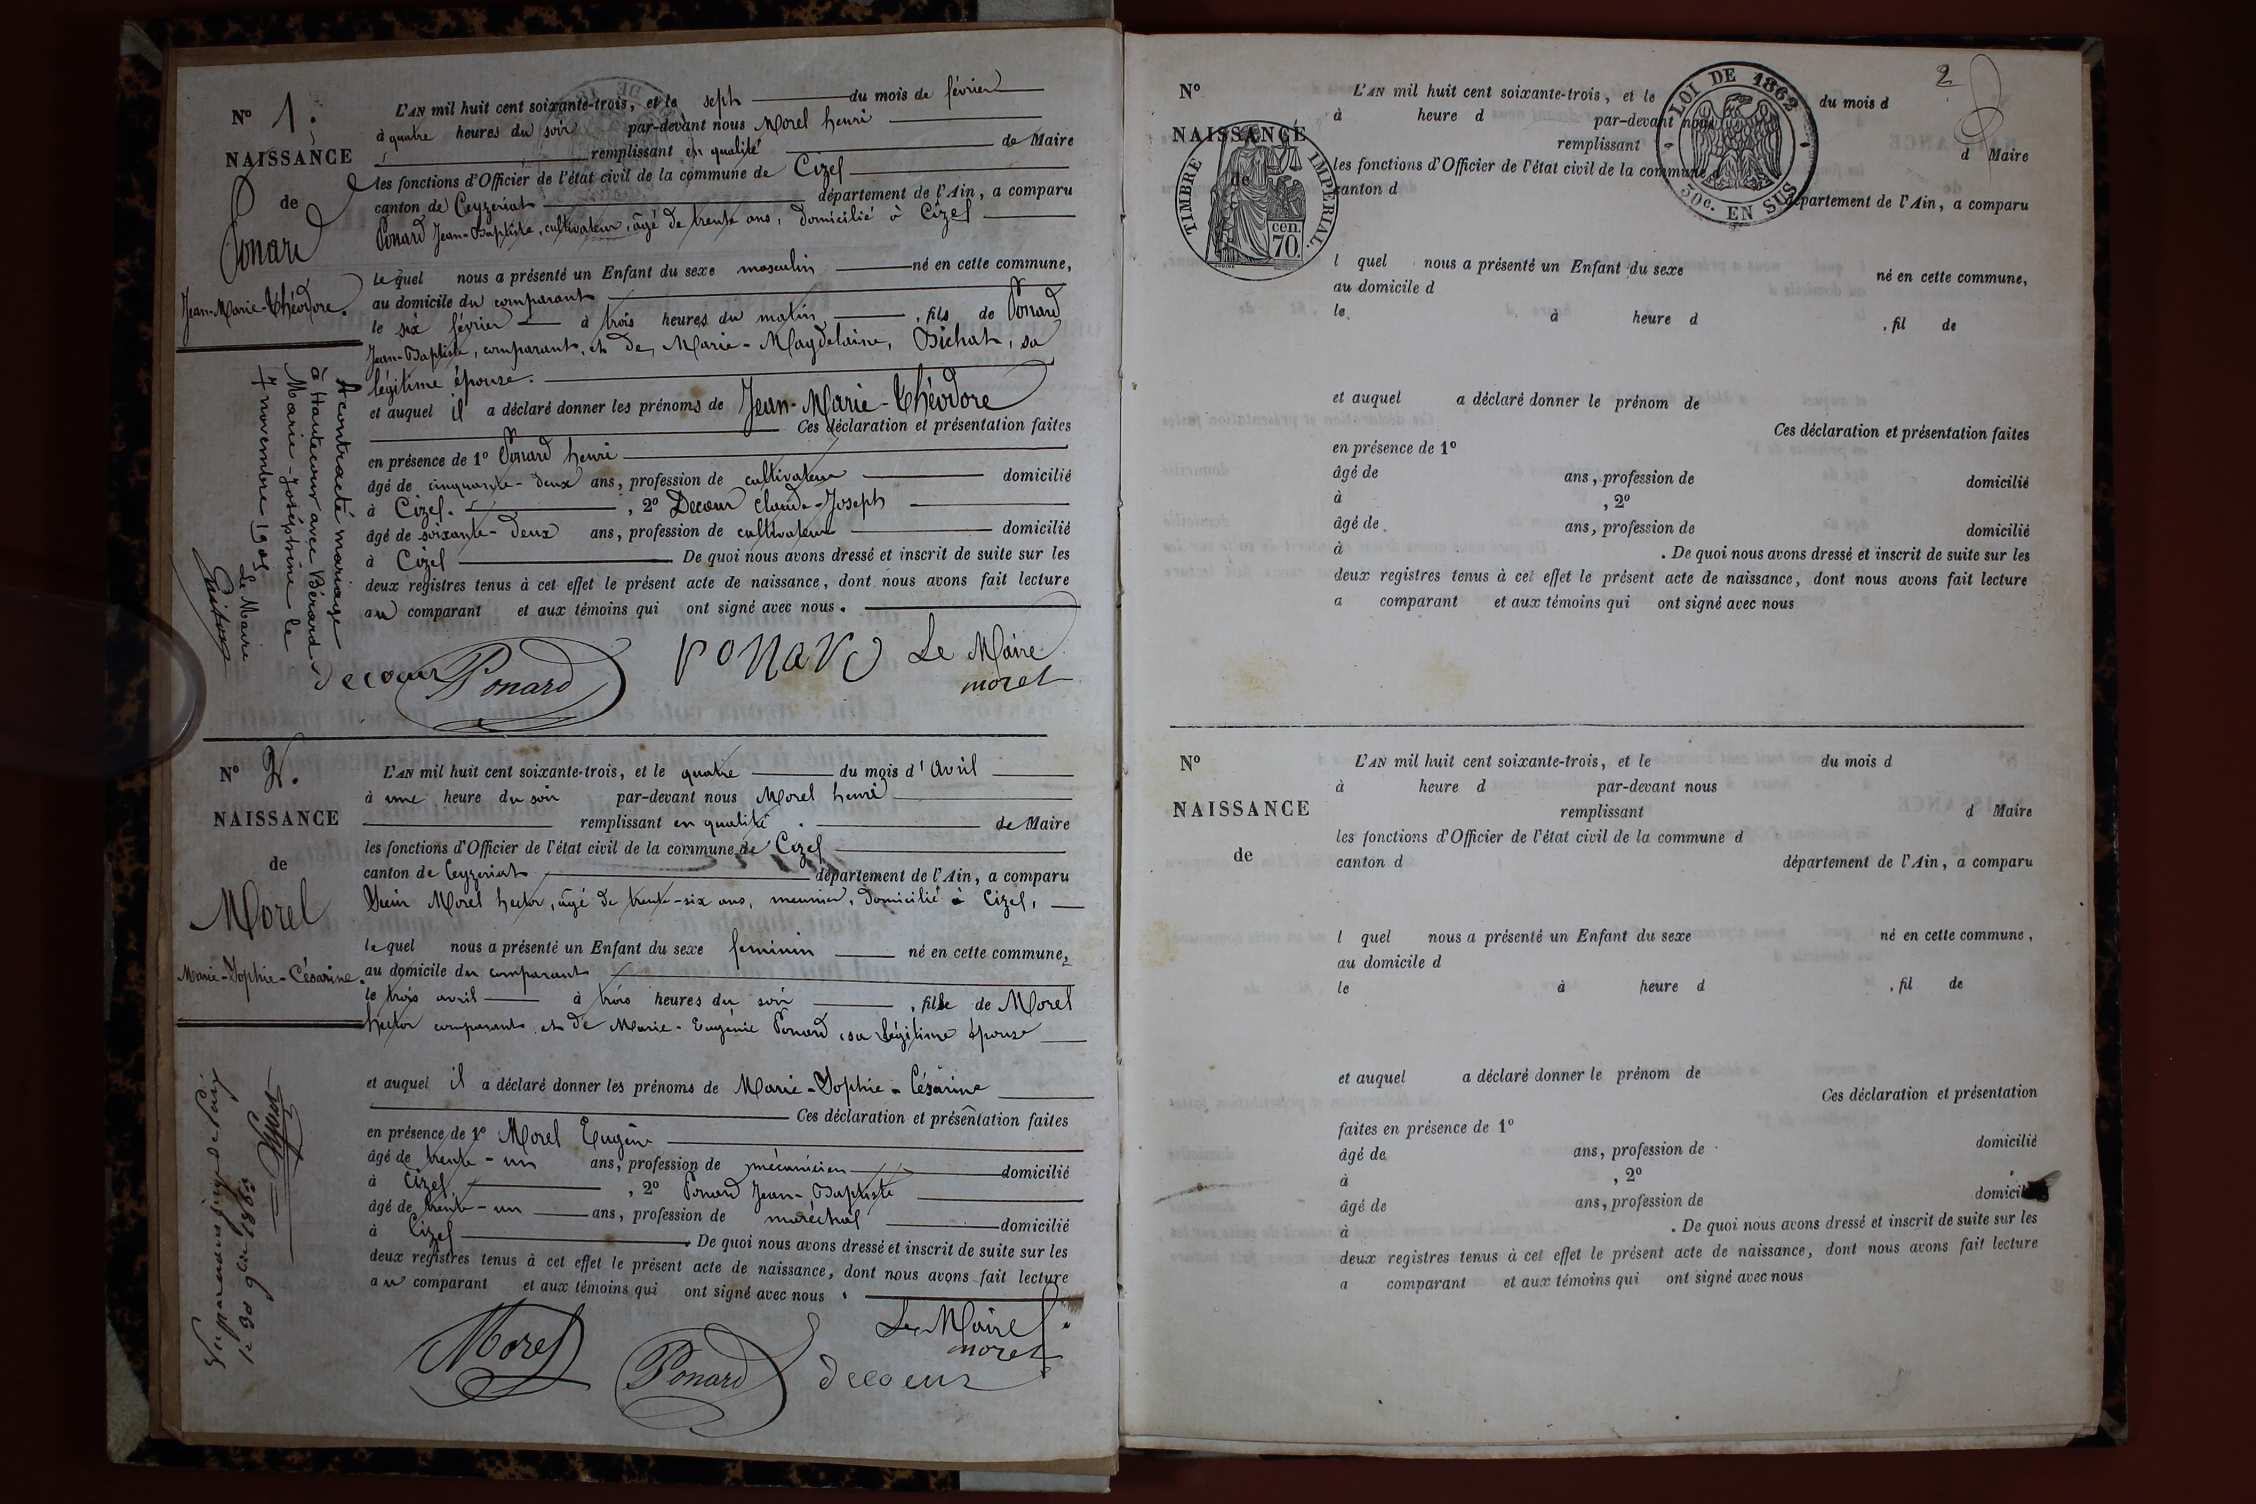 N° 1.
NAISSANCE
de
Ponard
Jean-Marie-Théodore.
A contracté mariage
à Hauteville avec Bérard
Marie-Joséphine le
7 novembre 1905
Le Maire
L'AN mil huit cent soixante-trois, et le sept du mois de février
à quatre heures du soir par-devant nous Morel henri
remplissant en qualité de Maire
les fonctions d'Officier de l'état civil de la commune de Cizel
canton de Ceyzeriat département de l'Ain, a comparu
Ponard Jean-Baptiste, cultivateur, âgé de trente ans, domicilié à Cizel
lequel nous a présenté un Enfant du sexe masculin né en cette commune,
au domicile du comparant
le six février à trois heures du matin, fils de Ponard
Jean-Baptiste, comparant, et de Marie-Magdelaine, Bichat, sa
légitime épouse.
et auquel il a déclaré donner les prénoms de Jean-Marie-Théodore
Ces déclaration et présentation faites
en présence de 1° Ponard henri
âgé de cinquante-deux ans, profession de cultivateur domicilié
à Cizel. , 2° Decœur Claude-Joseph
âgé de soixante-deux ans, profession de cultivateur domicilié
à Cizel De quoi nous avons dressé et inscrit de suite sur les
deux registres tenus à cet effet le présent acte de naissance, dont nous avons fait lecture
au comparant et aux témoins qui ont signé avec nous.
decœur Ponard ponard Le Maire
morel
N° 2.
NAISSANCE
de
Morel
Marie-Sophie-Césarine.
L'AN mil huit cent soixante-trois, et le quatre du mois d'Avril
à une heure du soir par-devant nous Morel henri
remplissant en qualité de Maire
les fonctions d'Officier de l'état civil de la commune de Cizel
canton de Ceyzeriat département de l'Ain, a comparu
Sieur Morel hector, âgé de trente-six ans, meunier, domicilié à Cizel,
lequel nous a présenté un Enfant du sexe feminin né en cette commune,
au domicile du comparant
le trois avril à trois heures du soir, fille de Morel
hector comparant, et de Marie-Eugénie Ponard, sa légitime épouse
et auquel il a déclaré donner les prénoms de Marie-Sophie-Césarine
Ces déclaration et présentation faites
en présence de 1° Morel Eugène
âgé de trente-un ans, profession de mécanicien domicilié
à Cizel , 2° Ponard Jean-Baptiste
âgé de trente-un ans, profession de maréchal domicilié
à Cizel . De quoi nous avons dressé et inscrit de suite sur les
deux registres tenus à cet effet le présent acte de naissance, dont nous avons fait lecture
au comparant et aux témoins qui ont signé avec nous.
Le Maire
morel
Morel Ponard decœur
2
TIMBRE IMPÉRIAL.
cen. 70.
LOI DE 1862
30c. EN SUS
N°
NAISSANCE
de
L'AN mil huit cent soixante-trois, et le du mois d
à heure d par-devant nous
remplissant d Maire
les fonctions d'Officier de l'état civil de la commune
canton d département de l'Ain, a comparu
l quel nous a présenté un Enfant du sexe né en cette commune,
au domicile d
le à heure d , fil de
et auquel a déclaré donner le prénom de
Ces déclaration et présentation faites
en présence de 1°
âgé de ans, profession de domicilié
à , 2°
âgé de ans, profession de domicilié
à . De quoi nous avons dressé et inscrit de suite sur les
deux registres tenus à cet effet le présent acte de naissance, dont nous avons fait lecture
a comparant et aux témoins qui ont signé avec nous
N°
NAISSANCE
de
L'AN mil huit cent soixante-trois, et le du mois d
à heure d par-devant nous
remplissant d Maire
les fonctions d'Officier de l'état civil de la commune d
canton d département de l'Ain, a comparu
l quel nous a présenté un Enfant du sexe né en cette commune,
au domicile d
le à heure d , fil de
et auquel a déclaré donner le prénom de
Ces déclaration et présentation
faites en présence de 1°
âgé de ans, profession de domicilié
à , 2°
âgé de ans, profession de domicilié
à . De quoi nous avons dressé et inscrit de suite sur les
deux registres tenus à cet effet le présent acte de naissance, dont nous avons fait lecture
a comparant et aux témoins qui ont signé avec nous